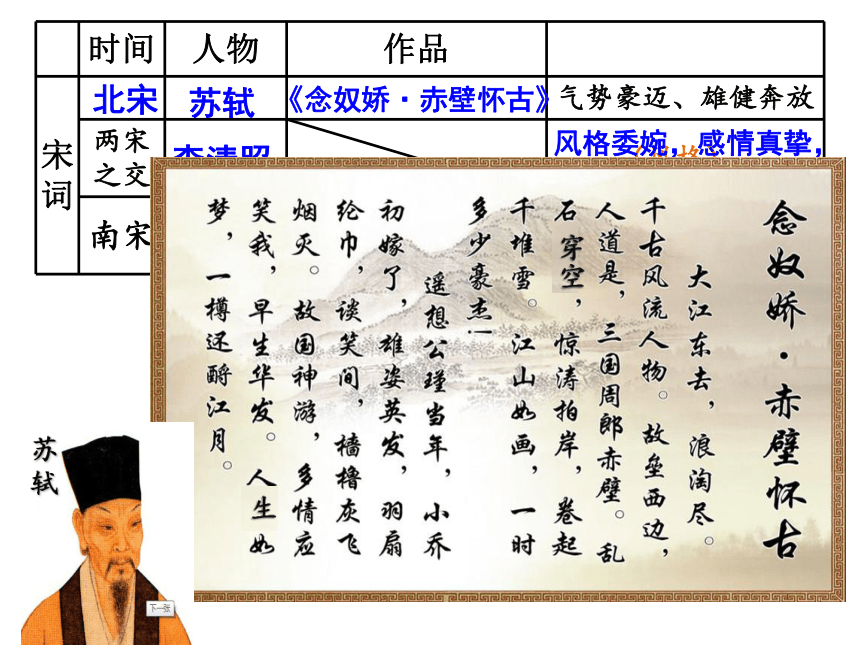 时间 人物 作品
宋词
北宋 苏轼 《念奴娇·赤壁怀古》 气势豪迈、雄健奔放
两宋之交 李清照 风格委婉，感情真挚，
南宋
念奴娇·赤壁怀古
大江东去，浪淘尽。
千古风流人物。故垒西边，
人道是，三国周郎赤壁。乱
石穿空，惊涛拍岸，卷起
千堆雪。江山如画，一时
多少豪杰！
遥想公瑾当年，小乔
初嫁了，雄姿英发，羽扇
纶巾，谈笑间，樯橹灰飞
烟灭。故国神游，多情应
笑我，早生华发。人生如
梦，一樽还酹江月。
苏轼
下一张